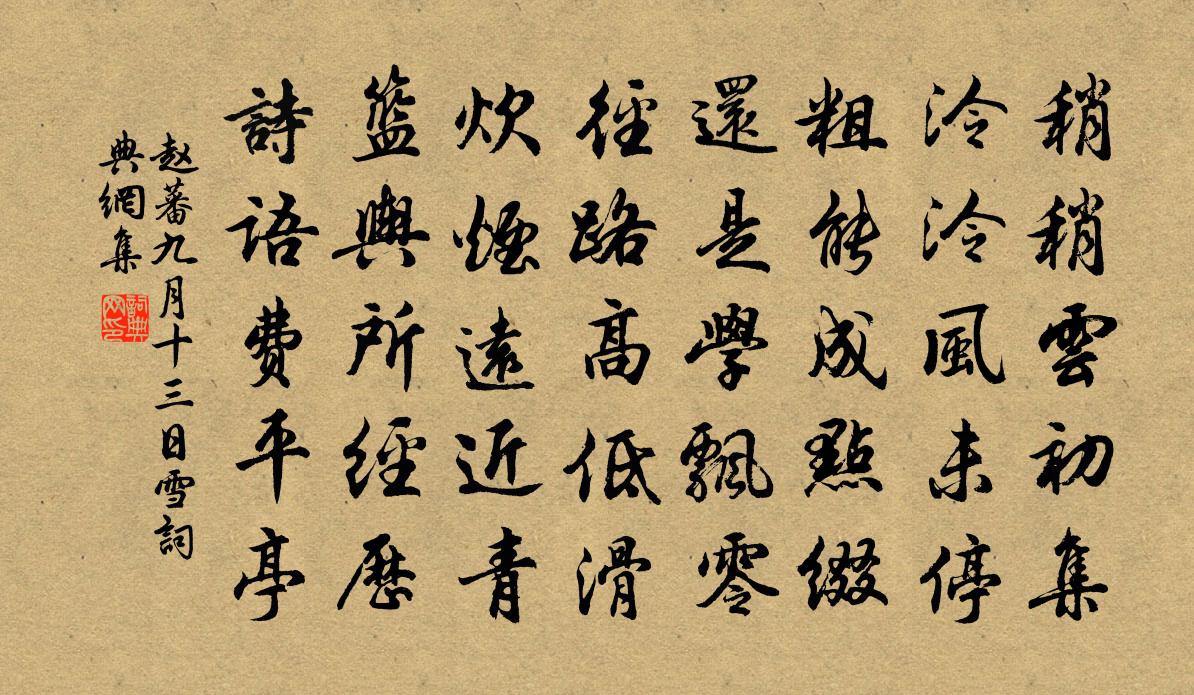 稍稍雲初集
泠泠風未停
粗能成點綴
還是學飄零
徑路高低滑
炊煙遠近青
籃輿所經歷
詩語費平亭
赵蕃九月十三日雪詞
典網集
詞典
网印